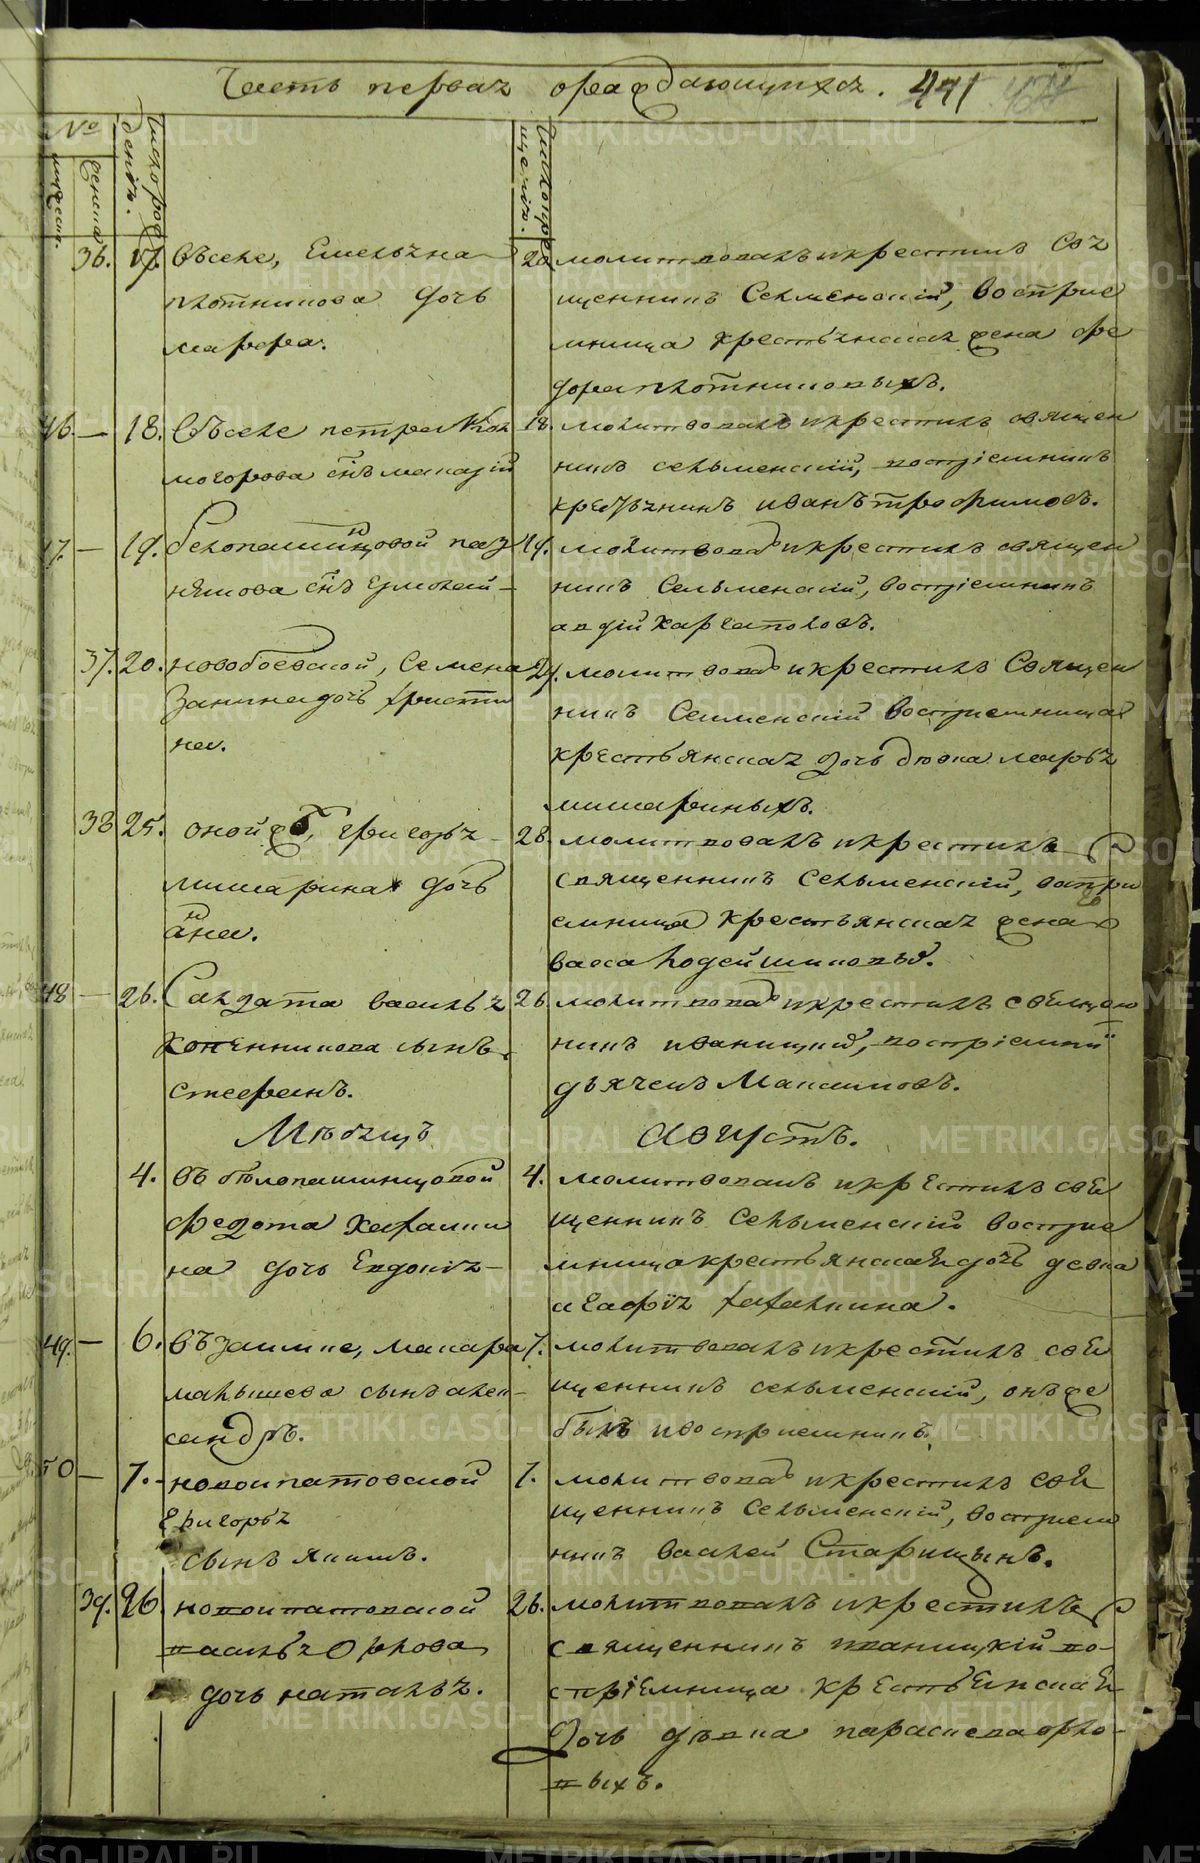 Часть первая ораждающихся. 441
№
Число рож
дения.
Число кре
щения.
мужеска.
женска
36. 17. Въ селе, Емельяна
плотникова дочь
марфа.
20 молитвовалъ и крестилъ свя
щенникъ Сельменский, Восприе
мница крестьянская жена фе
дора плотниковыхъ.
46. — 18. Въ селе петра Кол
могорова снъ макарiй
18. молитвовалъ и крестилъ священ
никъ сельменскiй, воспрiемникъ
крестьянинъ иванъ трофимовъ.
47. — 19. белопашинцовой
снъ ермолай —
19. молитвовалъ и крестилъ священ
никъ Сельменскiй, воспрiемникъ
авдiй Карга половъ.
37. 20. новобоевской, Семена
Занина дочь христи
на.
21. молитвовалъ и крестилъ Священ
никъ Селменскiй Восприемница
крестьянская дочь девка марья
мишариныхъ.
38 25. оной ж д, григорья
мишарина дочь
анна.
28. молитвовалъ и крестилъ
священникъ Сельменскiй, воспри
емница крестьянская жена
васса
48 — 26. Салдата василья
Конённикова сынъ
стефанъ.
26 молитвовалъ и крестилъ священ
никъ иваницкий, воспрiемни
дьячекъ Максимовъ.
Мъсяцъ Августъ.
4. въ бѣлопашинцовой
федота Халямин
на дочь Евдокiя —
4. молитвовалъ и крестилъ свя
щенникъ Сельменскiй Восприе
мница крестьянская дочь девка
агафiя халялмина.
49. — 6. Въ заимке, макара
малышева сынъ алек-
сандръ.
7. молитвовалъ и крестилъ свя
щенникъ сельменскiй, онъ же
былъ и восприемникъ
50 — 7. новоипатовской
Григорья
сынъ якимъ.
7. молитвовалъ и крестилъ свя
щенникъ Сельменскiй, восприем
никъ васлей Старицынъ.
39. 26. новоипатовской
васлья Орлова
дочь наталья.
26. молитвовалъ и крестилъ
священникъ иваницкiй во-
спрiемница крестьянская
Дочь дѣвка параскева орло-
выхъ.
METRIKI.GASO-URAL.RU